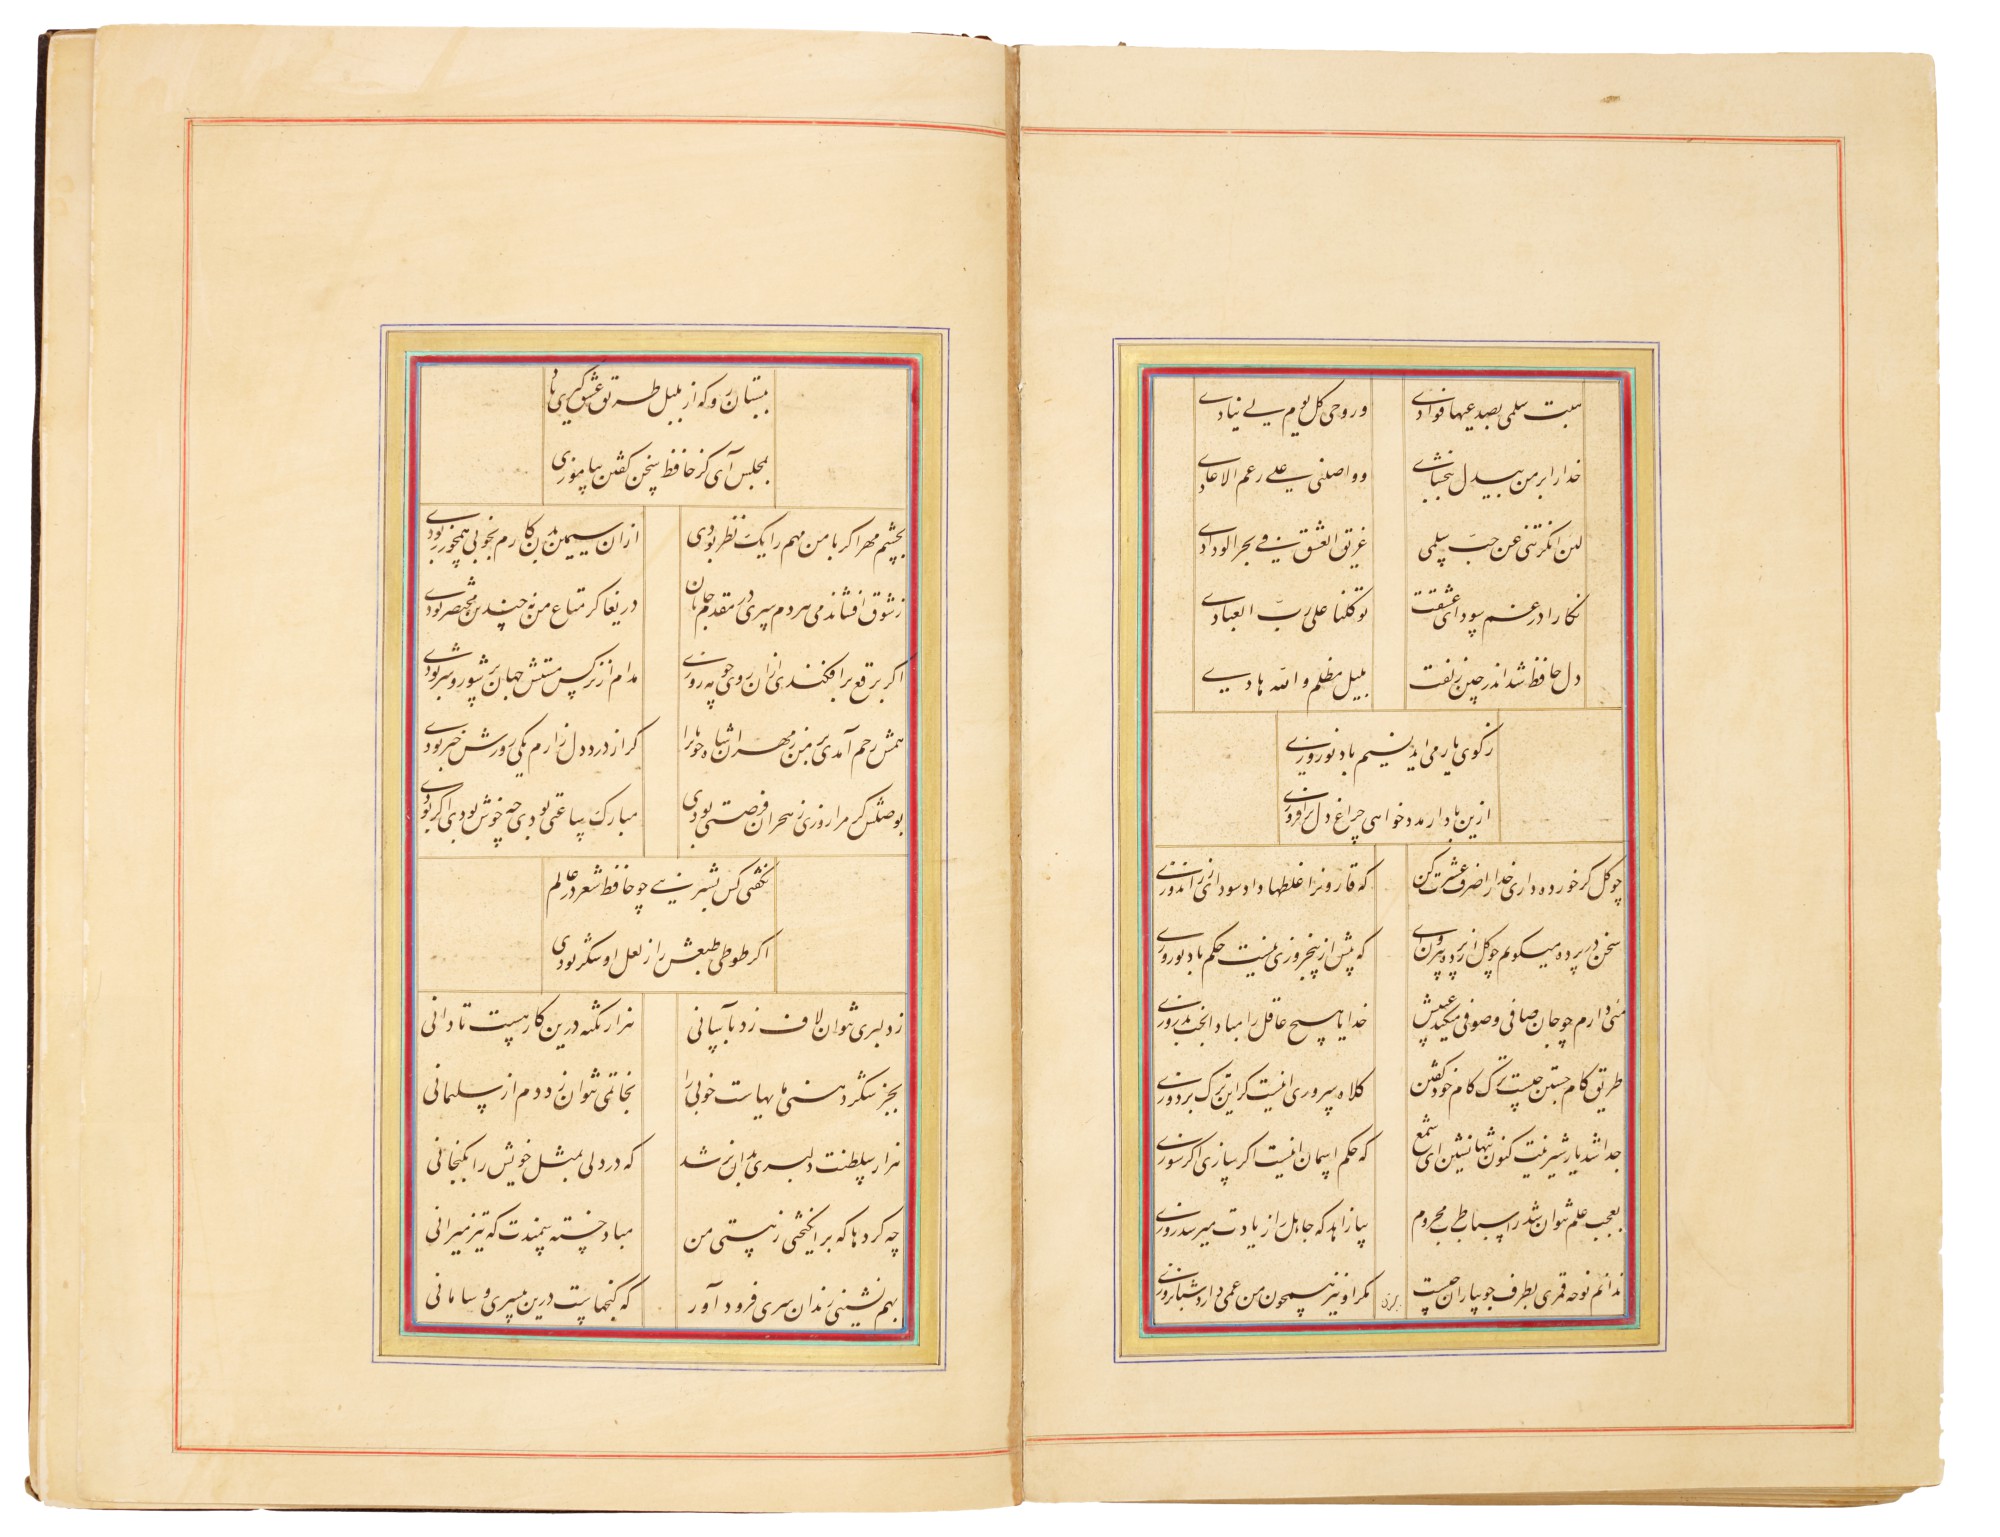 سبت سلمی بصدغیها فوادی
وروحی کل یوم لی ینادی
خدا را بر من بیدل ببخشای
وواصلنی علی رغم الاعادی
لمن انکرتنی عن حب سلمی
غریق العشق فی بحر الودادی
نکارا در غم سودای عشقت
توکلنا علی رب العبادی
دل حافظ شد اندر چین زلفت
بلیل مظلم والله هادی
ز کوی یار می اید نسیم باد نوروزی
ازین باد ار مدد خواهی چراغ دل برافروزی
چو کل کر خورده داری خدا را صرف عشرت کن
که قارونرا غلطها داد سودای زر اندوزی
سخن در پرده میکویم چو کل از پرده بیرون آی
که پیش از پنجروزی نیست حکم باد نوروزی
میی دارم چو جان صافی و صوفی میکند عیبش
خدایا هیچ عاقل را مبادا بخت بد روزی
طریق کام جستن چیست ترک کام خود کفتن
کلاه سروری انیست کر این ترک بردوزی
جدا شد یار شیرینت کنون تنها نشین ای شمع
که حکم اسمان اینست اکر سازی اکر سوزی
بعجب علم نتوان شد ز اسباب طرب محروم
بیا زاهد که جاهل را زیادت میرسد روزی
ندانم نوحه قمری بطرف جویباران چیست
مکر او نیز همچون من غمی دارد شبانروزی
ببستان رو که از بلبل طریق عشق کیری یاد
بمجلس آی کز حافظ سخن کفتن بیاموزی
بچشم مهر اکر با من مهم را یک نظر بودی
ازان سیمین بدن کارم بخوبی همچو زر بودی
ز شوق افشاندمی هر دم سری در مقدم جانان
دریغا کر متاع من نه چندین مختصر بودی
اکر برقع برافکندی ازان روی چو مه روزی
مدام از نرکس مستش جهان پر شور و شر بودی
همش رحم آمدی بر من ز مهر ان شاه خوبانرا
کر از درد دل زارم یکی روزش خبر بودی
بوصلش کر مرا روزی ز هجران فرصتی بودی
مبارک ساعتی بودی چه خوش بودی اکر بودی
نکفتی کس بشیرینی چو حافظ شعر در عالم
اکر طوطی طبعش را ز لعل او شکر بودی
ز دلبری نتوان لاف زد بآسانی
هزار نکته درین کار هست تا دانی
بجز شکر دهنی مایهاست خوبی را
بخاتمی نتوان زد دم از سلیمانی
هزار سلطنت دلبری بدان نرسد
که در دلی بمثل خویش را بکنجانی
چه کردها که برانکیختی ز هستی من
مباد خسته سمندت که تیز میرانی
بهم نشینی رندان سری فرود آور
که کنجهاست درین بی سری و سامانی